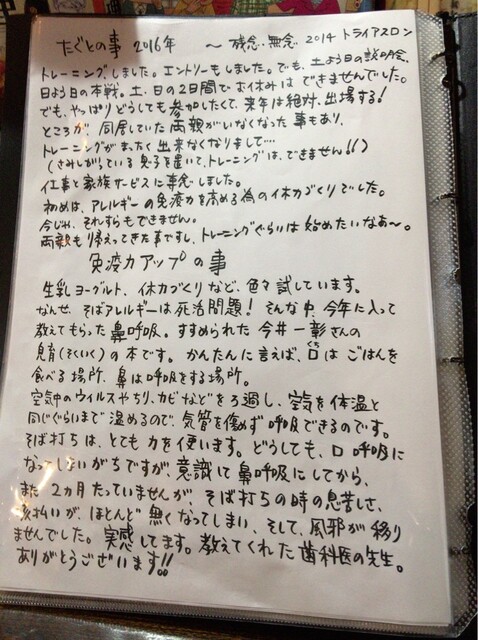 たぐとの事 2016年 ～ 残念.無念.2014 トライアスロン
トレーニングしました。エントリーもしました。でも、土よう日の説明会、
日よう日の本戦。土、日の2日間でお休みはできませんでした。
でも、やっぱりどうしても参加したくて、来年は絶対、出場する!
ところが、同居していた両親がいなくなった事もあり、
トレーニングがまったく出来なくなりまして・・・・
(さみしがりている息子を置いて、トレーニングは、できません!!)
仕事と家族サービスに専念しました。
初めは、アレルギーの免疫力を高める為の体力づくりでした。
今じゃ、それすらもできません。
両親も帰ってきた事ですし、トレーニングぐらいは始めたいなぁ～。
免疫力アップの事
生乳ヨーグルト、体力づくりなど、色々試しています。
なんせ、そばアレルギーは死活問題! そんな中、今年に入って
教えてもらった鼻呼吸。すすめられた今井一彰さんの
息育(そくいく)の本です。かんたんに言えば、口(くち)はごはんを
食べる場所、鼻は呼吸をする場所。
空気中のウイルスやちり、カビなどをろ過し、空気を体温と
同じぐらいまで温めるので、気管を傷めず呼吸できるのです。
そば打ちは、とても力を使います。どうしても、口呼吸に
なってしまいがちですが、意識して鼻呼吸にしてから、
まだ2カ月たっていませんが、そば打ちの時の息苦しさ、
咳払いが、ほとんど無くなってしまい、そして、風邪が移り
ませんでした。実感してます。教えてくれた歯科医の先生。
ありがとうございます!!